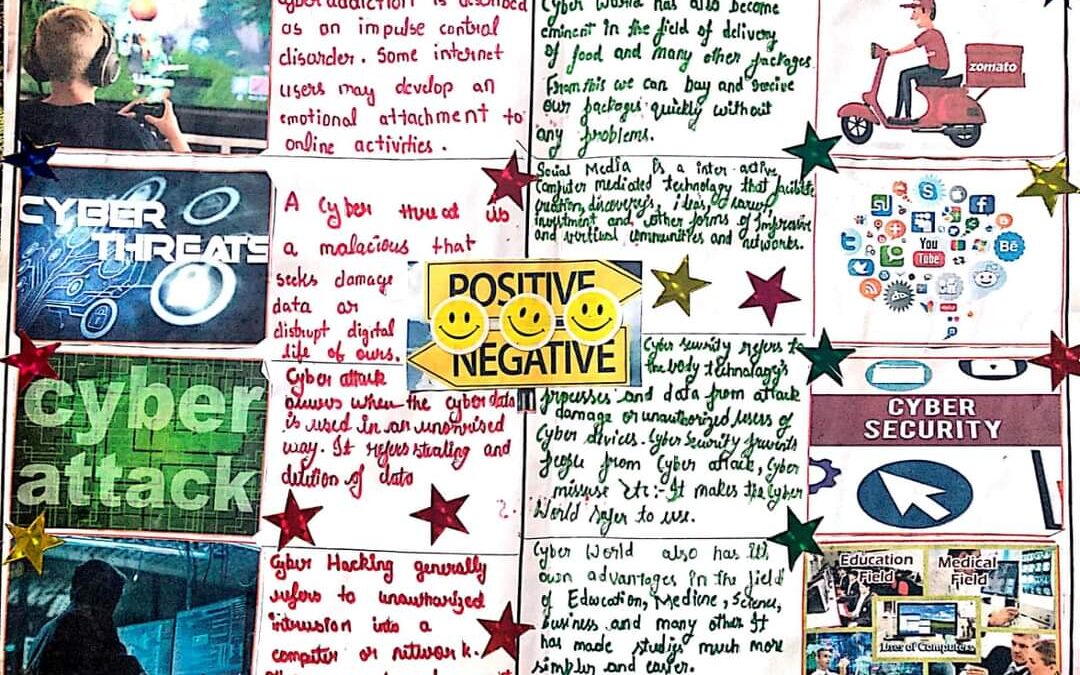 Cyber addiction is described
as an impulse control
disorder. Some internet
users may develop an
emotional attachment to
online activities.
Cyber World has also become
eminent in the field of delivery
of food and many other packages.
From this we can buy and receive
our packages quickly without
any problems.
zomato
CYBER
THREATS
A Cyber threat is
a malacious that
seeks damage
data or
disrupt digital
life of ours.
Social Media is a inter active
Computer mediated technology that facilitate
creation, discovery's, ideas,
investment and other forms of
and virtual communities and networks.
You
Tube
Bē
POSITIVE
NEGATIVE
cyber
attack
Cyber attack
occurs when the cyber data
is used in an
way. It refers stealing and
deletion of data
Cyber Security refers to
the body technology's
processes and data from attack
damage or unauthorized users of
Cyber devices. Cyber Security prevents
people from Cyber attack, Cyber
missuse etc:- It makes the Cyber
World safer to use.
CYBER
SECURITY
Cyber Hacking generally
refers to unautharized
intrusion into a
computer or network.
Cyber World also has its
own advantages in the field
of Education, Medicine, Science,
Business and many other It
has made studies much more
simpler and easier.
Education
Field
Medical
Field
Uses of Computers